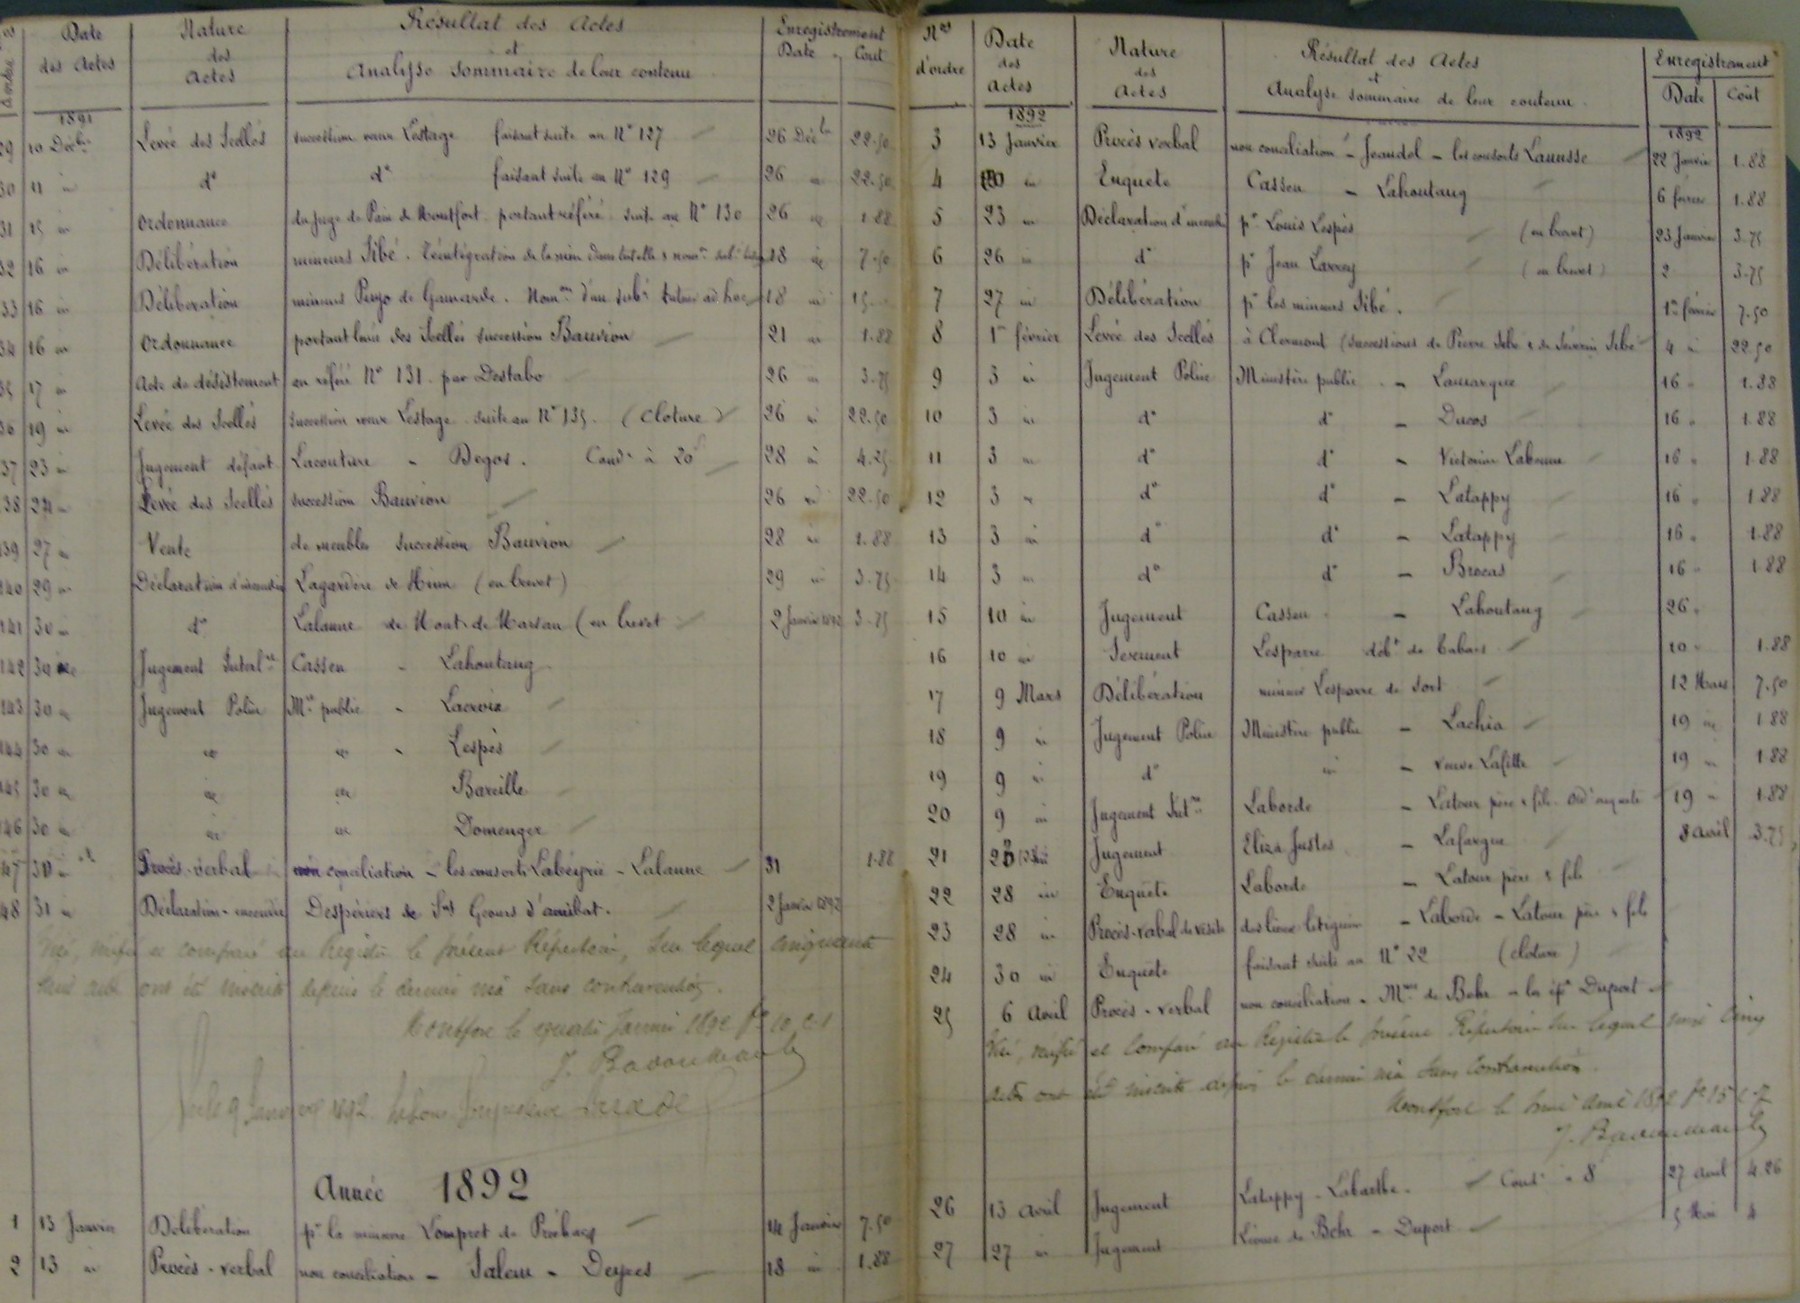 Date des Actes | Nature des Actes | Résultat des Actes et Analyse Sommaire de leur contenu | Enregistrement Date | Cout
1891
29 | 10 Décbre | Levée des Scellés | succession veuve Lestage faisant suite au N° 127 | 26 Décb | 22.50
30 | 11 | d° | d° faisant suite au N° 129 | 26 | 22.50
31 | 15 | Ordonnance | du Juge de Paix de Montfort portant référé suite au N° 130 | 26 | 1.88
32 | 16 | Délibération | mineurs Sibé. Réintégration de la mère dans tutelle & nomon | 18 | 7.50
33 | 16 | Délibération | mineurs de Gamarde. Nomon d'un subé tuteur ad hoc | 18 | 15
34 | 16 | Ordonnance | portant levée des Scellés succession Bauvion | 21 | 1.88
35 | 17 | Acte de désistement | en référé N° 131 par Destabo | 26 | 3.75
36 | 19 | Levée des Scellés | succession veuve Lestage suite au N° 135. (Cloture) | 26 | 22.50
37 | 23 | Jugement défaut | Lacouture - Degos. Condé à 20f | 28 | 4.25
138 | 24 | Levée des Scellés | succession Bauvion | 26 | 22.50
139 | 27 | Vente | de meubles succession Bauvion | 28 | 1.88
140 | 29 | Déclaration d'incendie | Lagardère de Hinx (en brevet) | 29 | 3.75
141 | 30 | d° | Lalanne de Mont-de-Marsan (en brevet | 2 Janvier 1892 | 3.75
142 | 30 | Jugement Interlre | Cassen - Lahoutang
143 | 30 | Jugement Police | Mre public - Lacroix
144 | 30 | Lespès
145 | 30 | Bareille
146 | 30 | Domenger
147 | 30 | Procès-verbal | non conciliation - les consorts Labéyrie - Lalanne | 31 | 1.88
148 | 31 | Déclaration-incendie | Despériers de St Geours d'auribat. | 2 Janvier 1892
Visé, vérifié et comparé au Registre le présent Répertoire, sur lequel cinquante
actes ont été inscrits depuis le dernier visa sans contravention.
Montfort le quatre Janvier 1892 fo 10 c 1
Année 1892
1 | 13 Janvier | Délibération | pr la mineure Lompret de Préchacq | 14 Janvier | 7.50
2 | 13 | Procès-verbal | non conciliation - Salem - Deyres | 18 | 1.88
Nos d'ordre | Date des Actes | Nature des Actes | Résultat des Actes et Analyse sommaire de leur contenu. | Enregistrement Date | Coût
1892 | 1892
3 | 13 Janvier | Procès verbal | non conciliation - Jeandel - les consorts Lanusse | 22 Janvier | 1.88
4 | 20 | Enquete | Cassen - Lahoutang | 6 février | 1.88
5 | 23 | Déclaration d'incendie | pr Louis Lespès (en brevet) | 23 Janvier | 3.75
6 | 26 | d° | pr Jean Larrey (en brevet) | 2 | 3.75
7 | 27 | Délibération | pr les mineurs Sibé. | 1er février | 7.50
8 | 1er février | Levée des Scellés | à Clermont (successions de Pierre Sibé & de Séverin Sibé | 4 | 22.50
9 | 3 | Jugement Police | Ministère public - Lamarque | 16 | 1.88
10 | 3 | d° | d° - Ducos | 16 | 1.88
11 | 3 | d° | d° - Victorine Labeune | 16 | 1.88
12 | 3 | d° | d° - Latappy | 16 | 1.88
13 | 3 | d° | d° - Latappy | 16 | 1.88
14 | 3 | d° | d° - Brocas | 16 | 1.88
15 | 10 | Jugement | Cassen - Lahoutang | 26
16 | 10 | Serment | Lesparre débt de tabacs | 10 | 1.88
17 | 9 Mars | Délibération | mineur Lesparre de Sort | 12 Mars | 7.50
18 | 9 | Jugement Police | Ministère public - Lachia | 19 | 1.88
19 | 9 | d° | - veuve Lafitte | 19 | 1.88
20 | 9 | Jugement Intre | Laborde - Latour père & fils. Ordt enquete | 19 | 1.88
21 | 23 | Jugement | Eliza Justes - Lafargue | 8 avril | 3.75
22 | 28 | Enquete | Laborde - Latour père & fils
23 | 28 | Procès-verbal de visite | des lieux litigieux - Laborde - Latour père & fils
24 | 30 | Enquete | faisant suite au N° 22 (cloture)
25 | 6 Avril | Procès-verbal | non conciliation - Mme de Behr - les épx Duport
Visé, vérifié et comparé au Registre le présent Répertoire sur lequel cinq
actes ont été inscrits depuis le dernier visa sans contravention.
Montfort le avril 1892 fo 15 c 7
26 | 13 avril | Jugement | Latappy - Labarthe. Condé à 8 | 27 avril | 4.26
27 | 27 | Jugement | Léonce de Behr - Duport | 5 Mai | 4